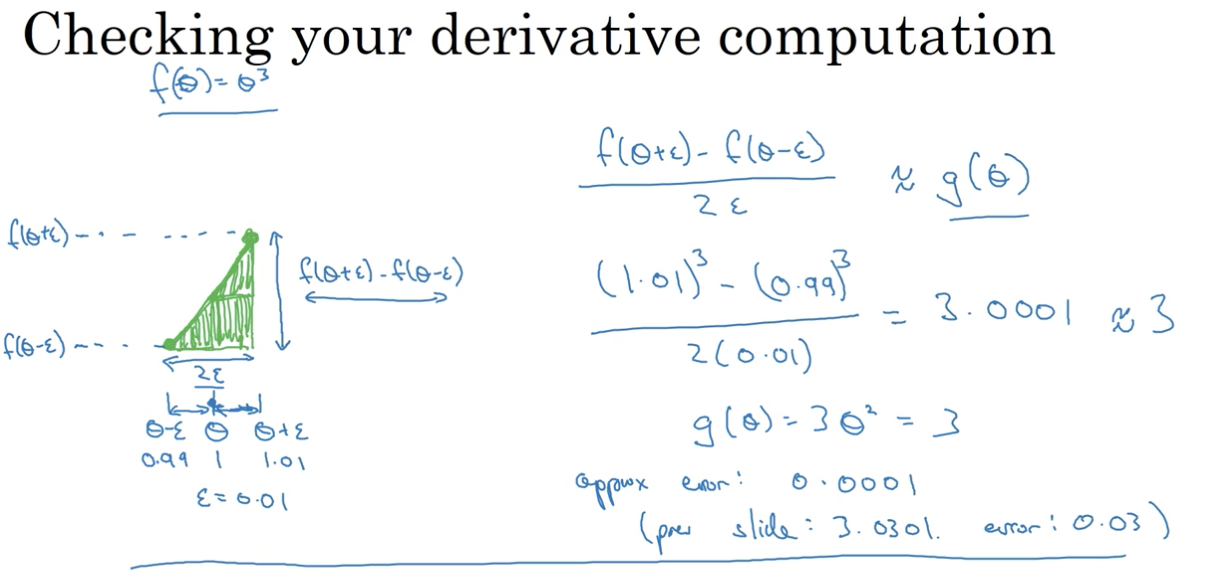 Checking your derivative computation
f(θ) = θ³
f(θ+ε) - f(θ-ε) / 2ε ≈ g(θ)
f(θ+ε)
f(θ+ε) - f(θ-ε)
f(θ-ε)
2ε
θ-ε θ θ+ε
0.99 1 1.01
ε = 0.01
(1.01)³ - (0.99)³ / 2(0.01) = 3.0001 ≈ 3
g(θ) = 3θ² = 3
approx error: 0.0001
(prev slide: 3.0301. error: 0.03)